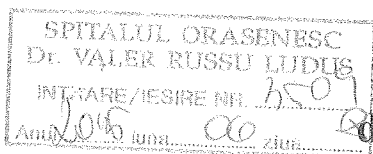 SPITALUL ORASENESC
Dr. VALER RUSSU LUDUS
INTRARE/IESIRE NR.
Anul luna 06 ziua